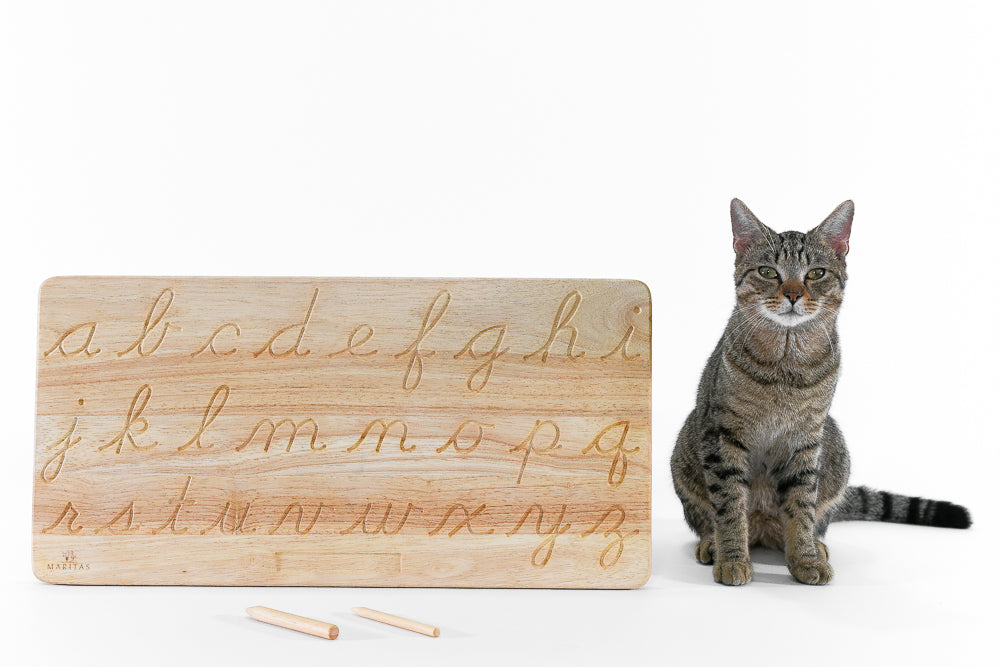 a b c d e f g h i
j k l m n o p q
r s t u v w x y z
MARITAS